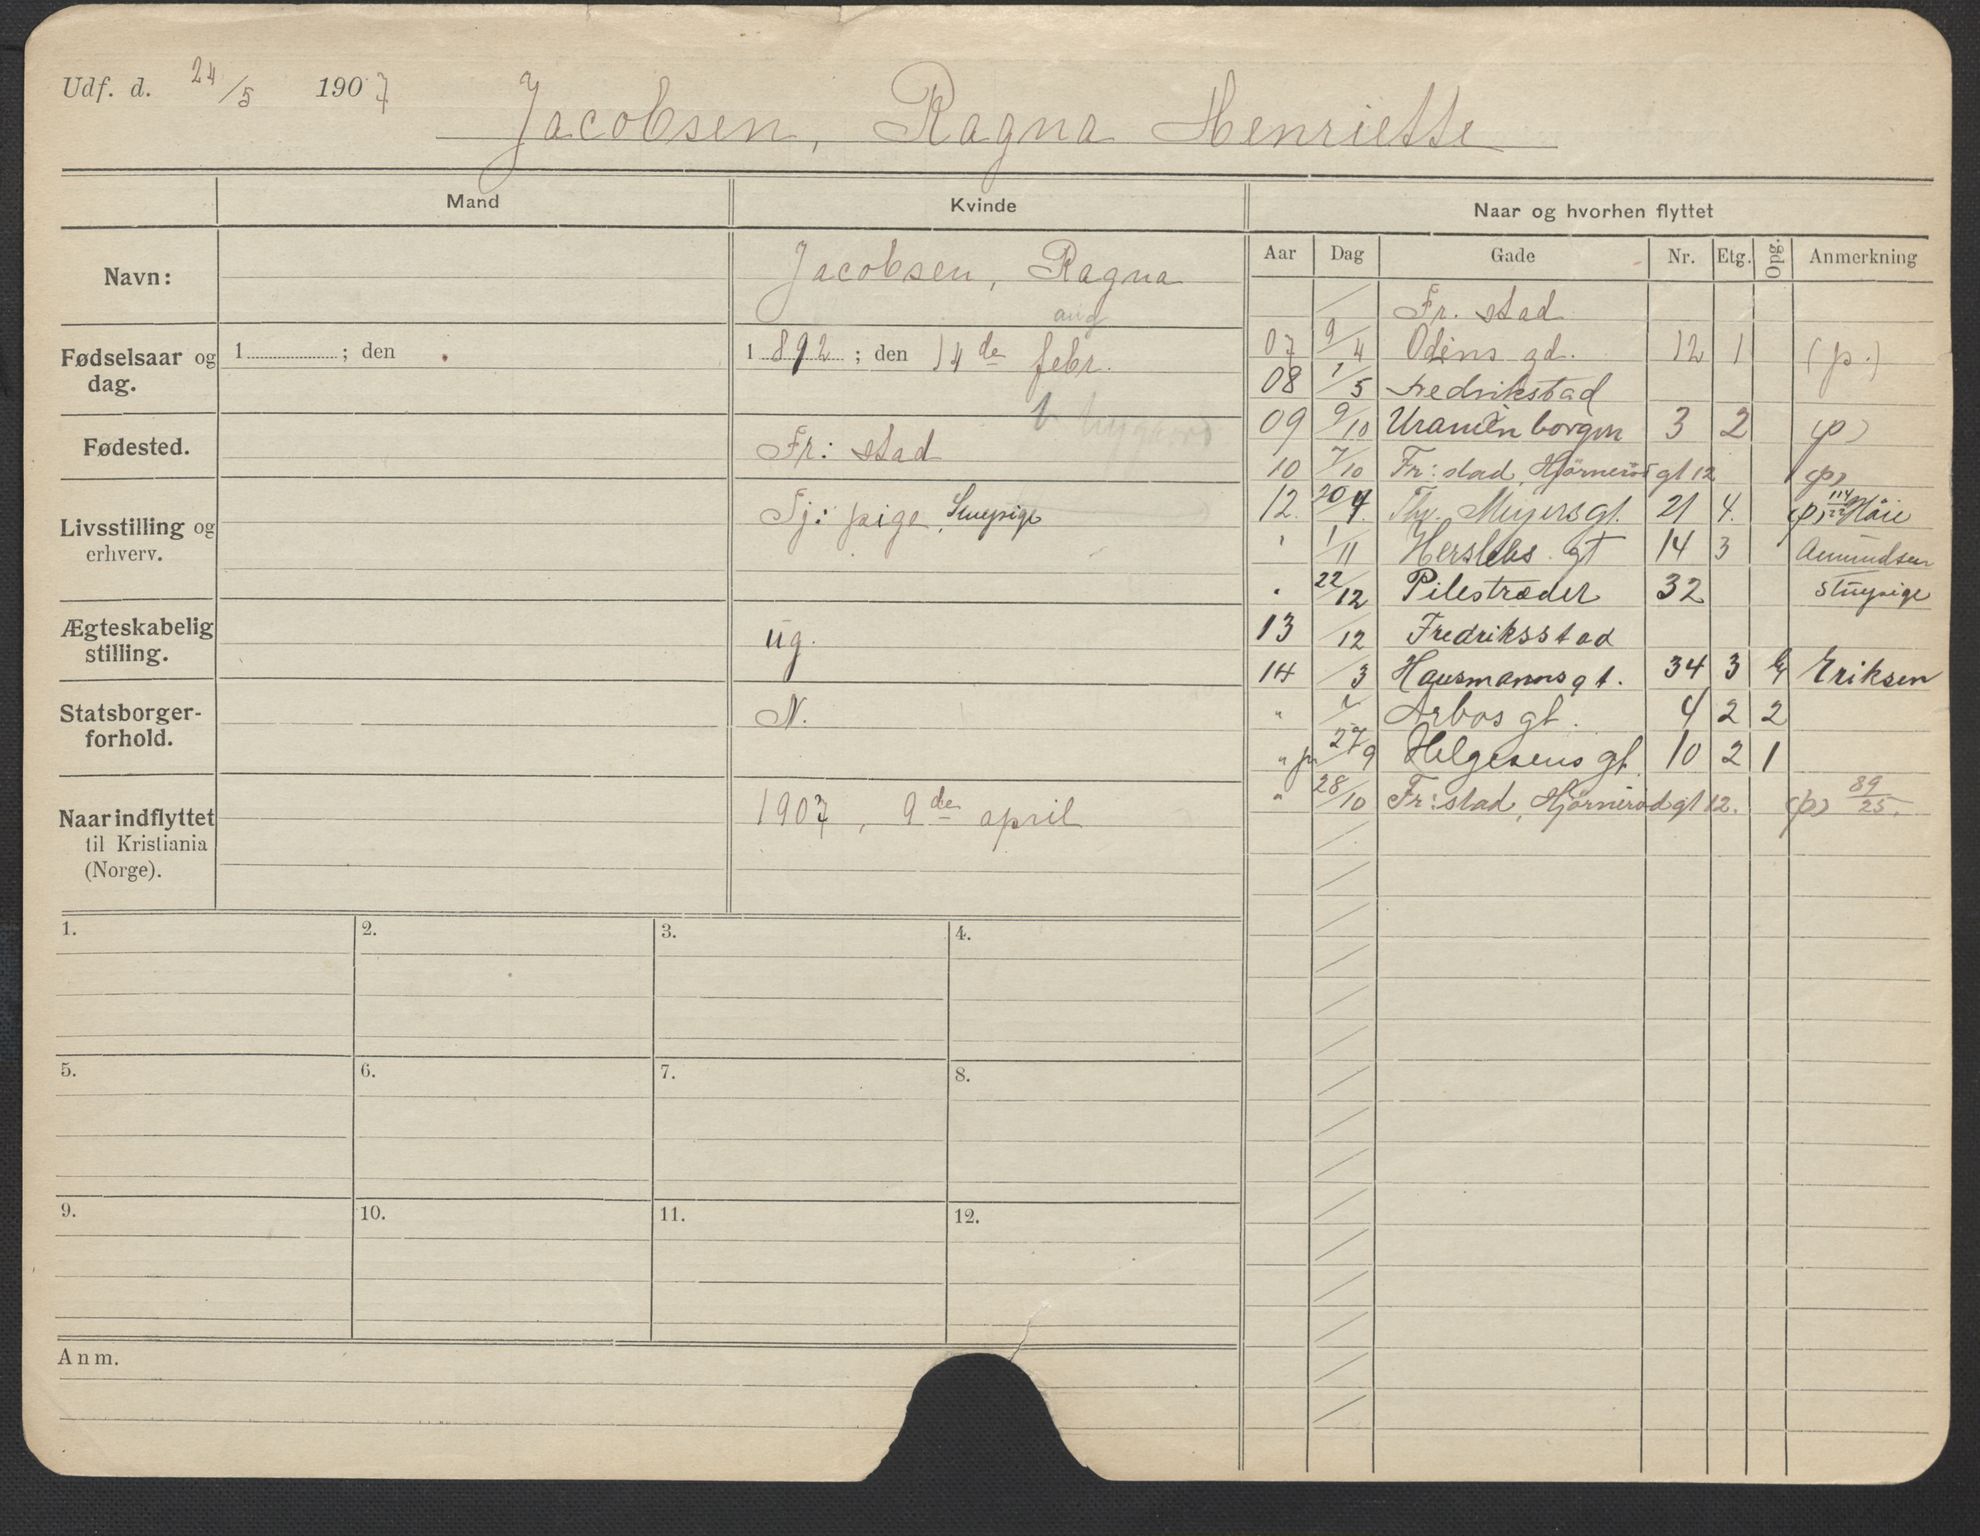 Udf. d. 24/5 1907
Jacobsen, Ragna Henriette
Mand
Kvinde
Naar og hvorhen flyttet
Navn:
Jacobsen, Ragna
Aar Dag Gade Nr. Etg. Opg. Anmerkning
Fr. stad
Fødselsaar og dag.
1 ; den
1 892 ; den 14de febr.
aug
07 9/4 Odins gd. 12 1 (p.)
08 1/5 Fredrikstad
Fødested.
Fr: stad
09 9/10 Uranienborgvn 3 2 (p)
10 7/10 Fr: stad, Hjørnerød gt 12 (p)
Livsstilling og erhverv.
Tj: pige, Stuepige
12. 20/4 Thv. Meyersgt. 21 4. (p) Høie
" 1/11 Herslebs gt 14 3 Amundsen
" 22/12 Pilestrædet 32 Stuepige
Ægteskabelig stilling.
ug.
13 /12 Fredriksstad
14 /3 Hausmannsgt. 34 3 Eriksen
Statsborger-forhold.
N.
" Arbos gt. 4 2 2
" fr 27/9 Helgesens gt. 10 2 1
Naar indflyttet til Kristiania (Norge).
1907, 9de april
" 28/10 Fr: stad, Hjørnerød gt 12. (p) 89/25.
1. 2. 3. 4.
5. 6. 7. 8.
9. 10. 11. 12.
Anm.